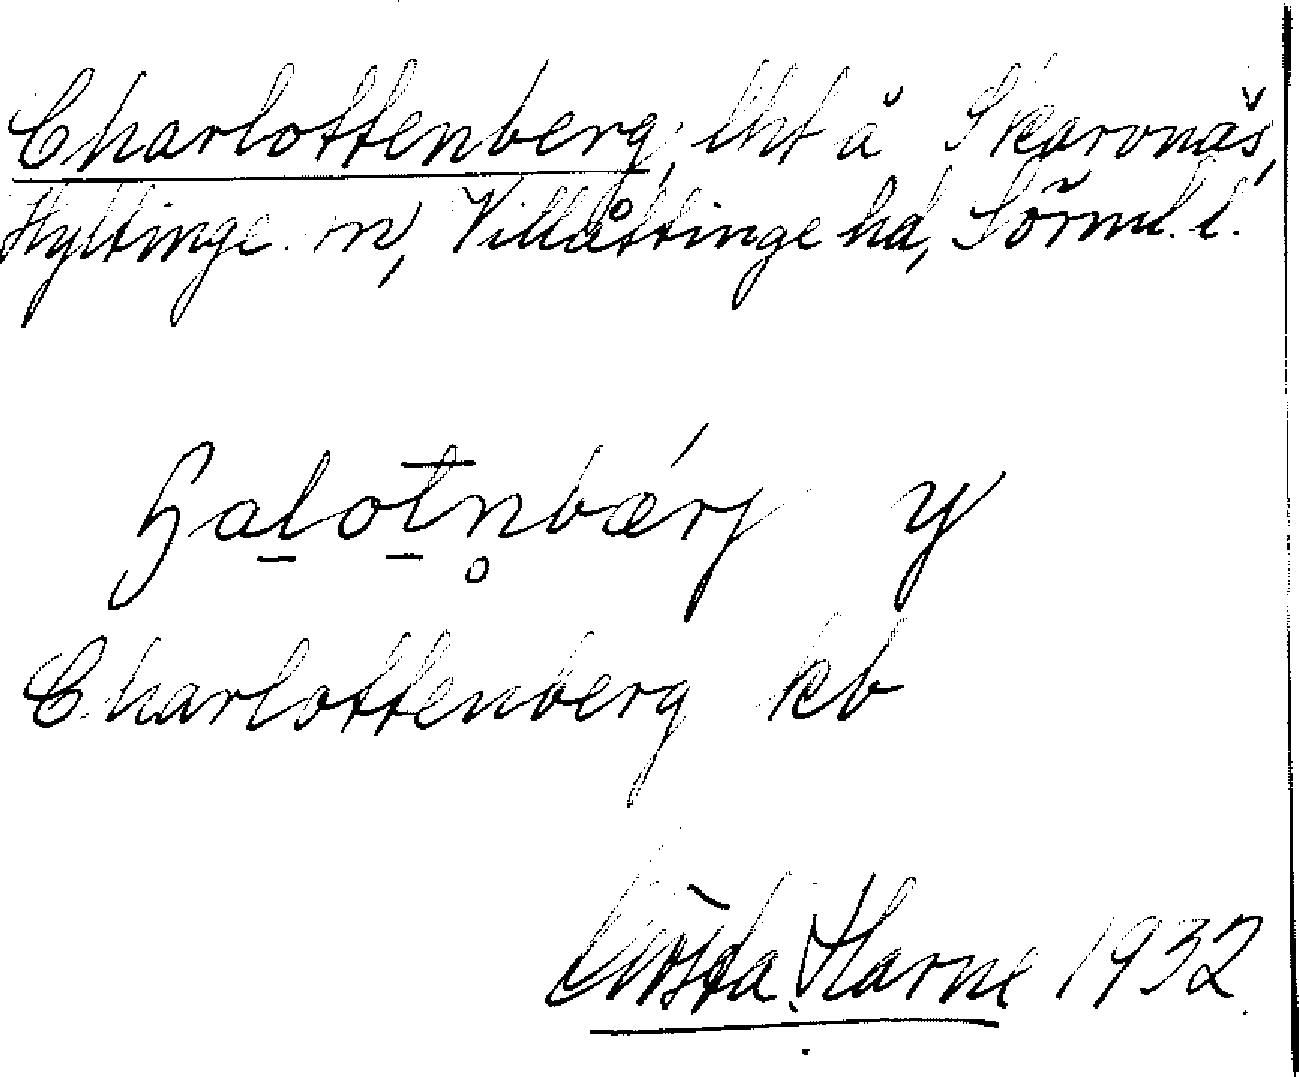 Charlottenberg, lht å Skarvnäs,
Hyltinge sn, Villåttinge hd, Sörml. l.
ɧalotn̥bærj y
Charlottenberg kb
Gösta Harne 1932